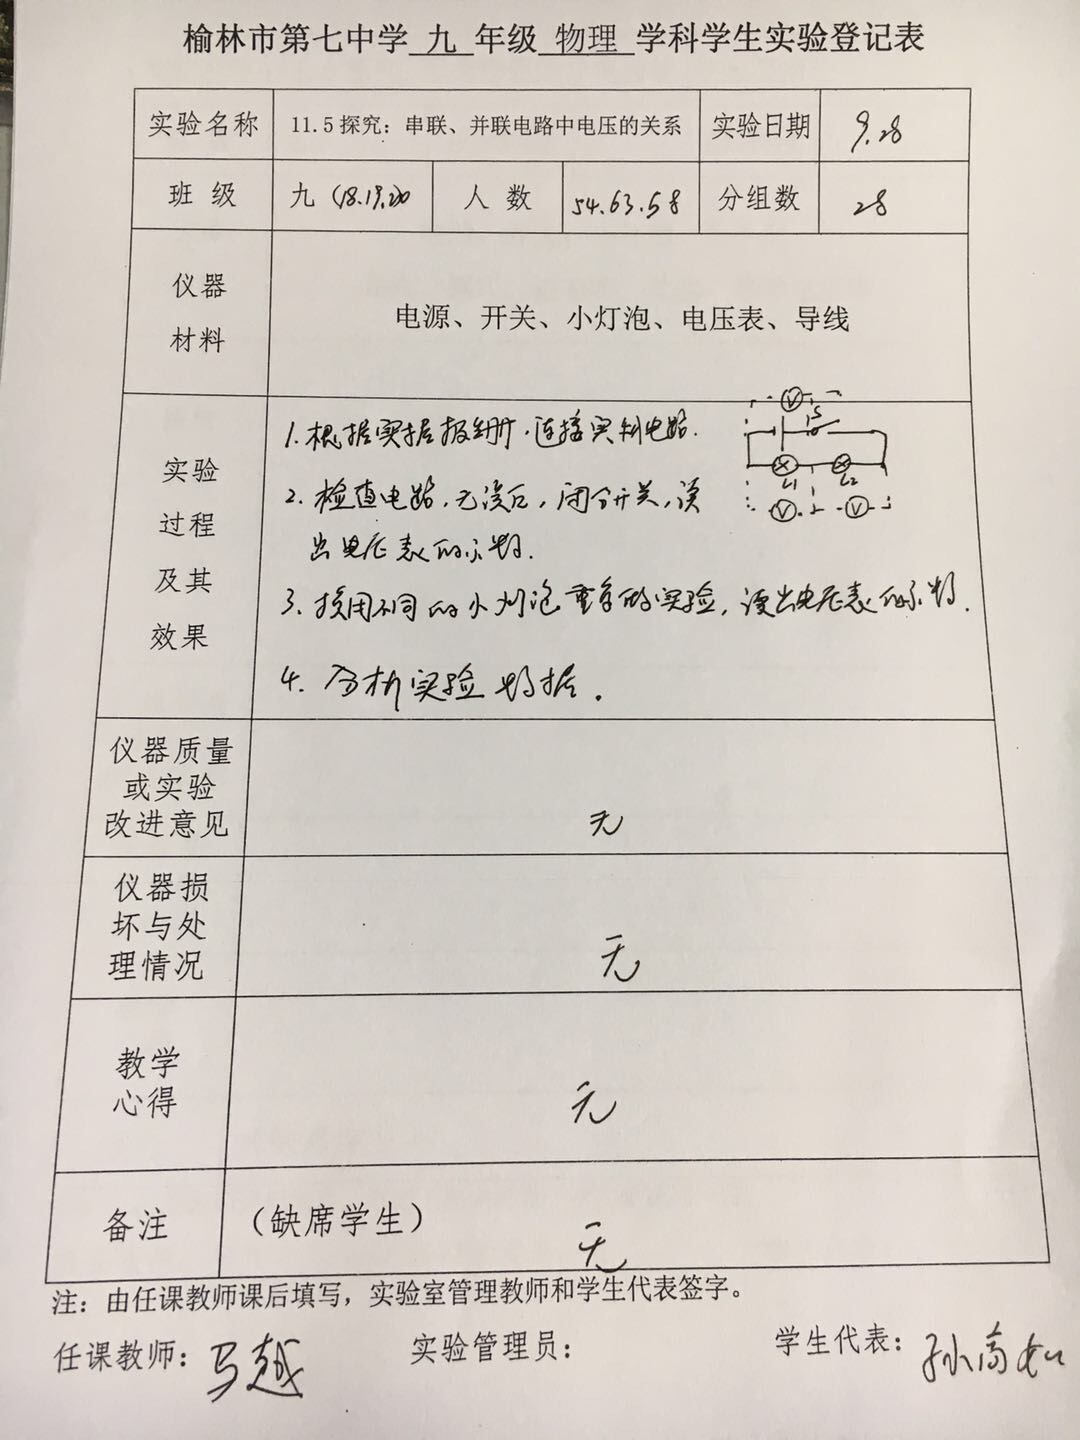 榆林市第七中学 九 年级 物理 学科学生实验登记表
实验名称 11.5 探究：串联、并联电路中电压的关系 实验日期 9.28
班 级 九 (18.19.20 人 数 54.63.58 分组数 28
仪器
材料
电源、开关、小灯泡、电压表、导线
实验
过程
及其
效果
1. 根据实据报册，连接实物电路.
2. 检查电路，无误后，闭合开关，读
出电压表的示数.
3. 换用不同的小灯泡重复的实验，读出电压表的示数.
4. 分析实验数据.
V
S
L1 L2
V V
仪器质量
或实验
改进意见
无
仪器损
坏与处
理情况
无
教学
心得
无
备注 （缺席学生）
无
注：由任课教师课后填写，实验室管理教师和学生代表签字。
任课教师：马越 实验管理员： 学生代表：孙高